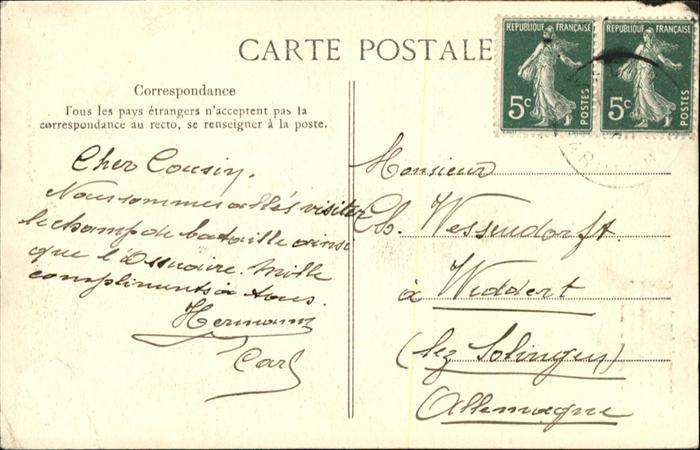 CARTE POSTALE
REPUBLIQUE FRANÇAISE
5c
POSTES
REPUBLIQUE FRANÇAISE
5c
POSTES
Correspondance
Tous les pays étrangers n'acceptent pas la
correspondance au recto, se renseigner à la poste.
Cher Cousin,
Nous sommes allés visiter
le champ de bataille ainsi
que l'Ossuaire. Mille
compliments à tous.
Hermann
Carl
Monsieur
Ch. Wessendorft
à Widdert
(lez Solingen)
Allemagne